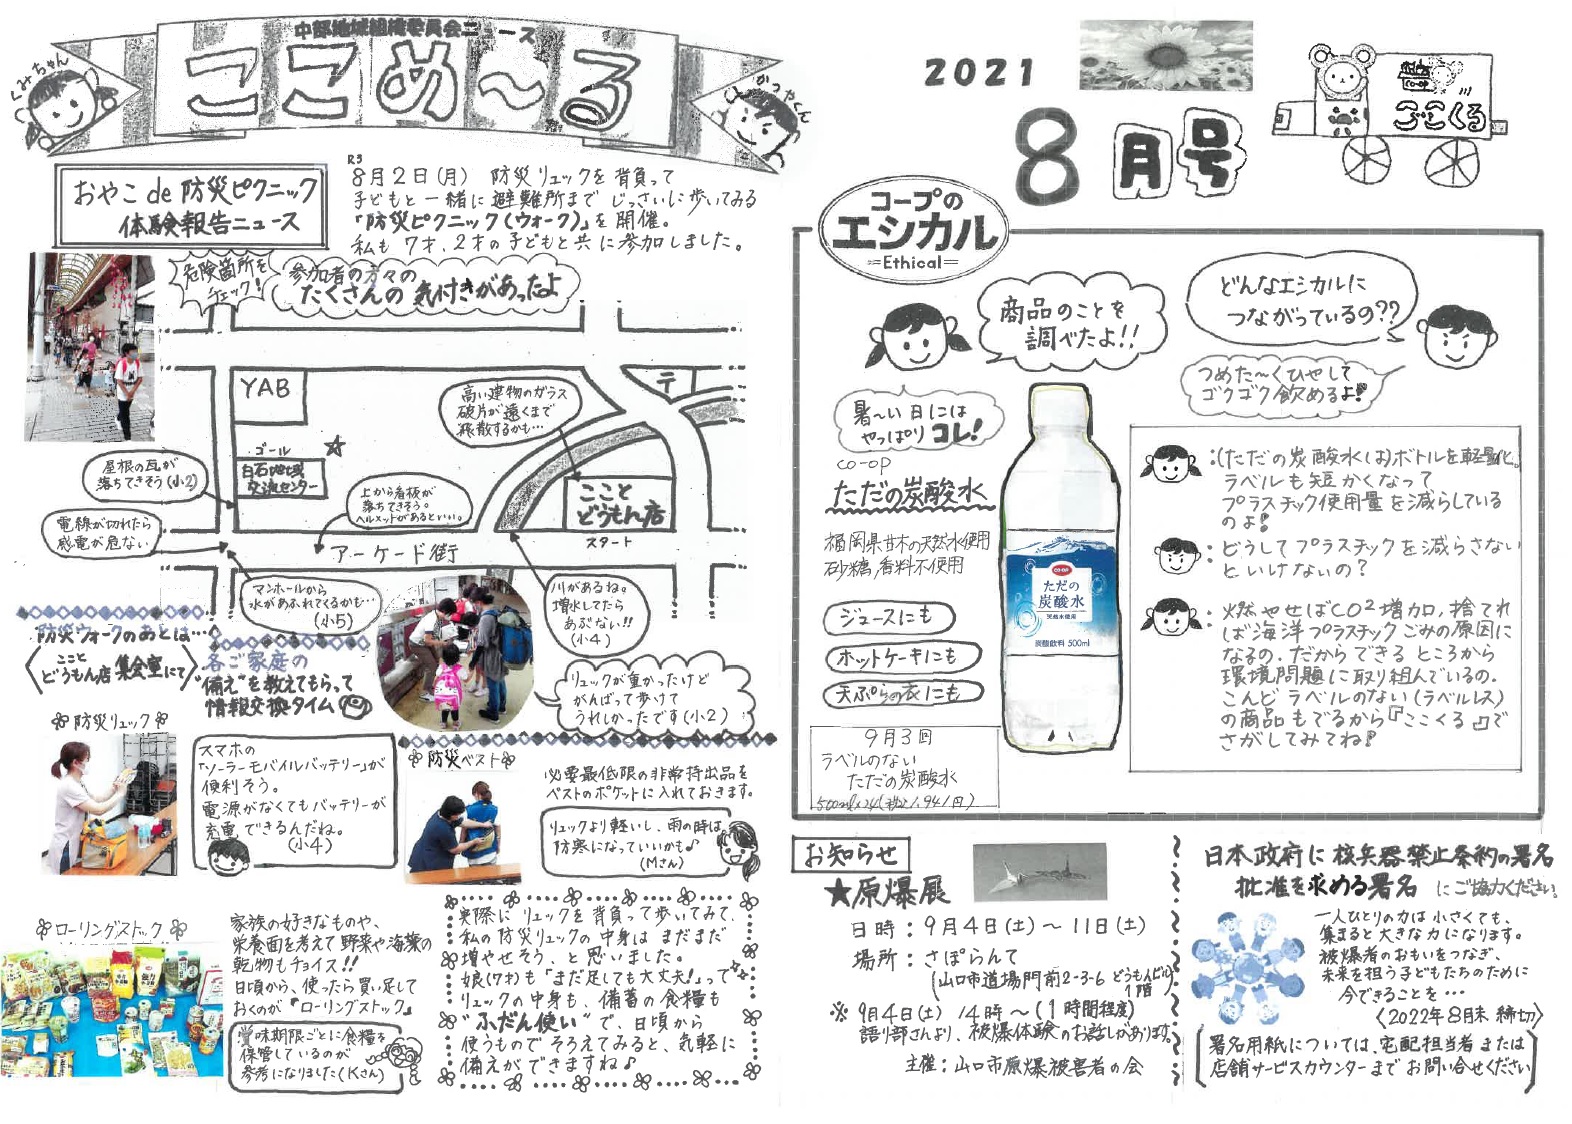 中部地域組織委員会ニュース
ここめ～る
くみちゃん
かつやくん
2021
8月号
ここくる
おやこ de 防災ピクニック
体験報告ニュース
R3
8月2日(月) 防災リュックを背負って
子どもと一緒に避難所までじっさいに歩いてみる
「防災ピクニック(ウォーク)」を開催。
私も7才、2才の子どもと共に参加しました。
危険箇所を
チェック!
参加者の方々の
たくさんの気付きがあったよ
YAB
テ
高い建物のガラス
破片が遠くまで
飛散するかも…
ゴール
白石地域
交流センター
屋根の瓦が
落ちてきそう(小2)
電線が切れたら
感電が危ない
上から看板が
落ちてきそう。
ヘルメットがあるといい。
こことどうもん店
スタート
アーケード街
マンホールから
水があふれてくるかも…
(小5)
川があるね。
増水してたら
あぶない!!
(小4)
防災ウォークのあとは…
ここと
どうもん店 集会室にて
各ご家庭の
"備え"を教えてもらって
情報交換タイム
リュックが重かったけど
がんばって歩けて
うれしかったです(小2)
防災リュック
スマホの
「ソーラーモバイルバッテリー」が
便利そう。
電源がなくてもバッテリーが
充電できるんだね。
(小4)
防災ベスト
必要最低限の非常持出品を
ベストのポケットに入れておきます。
リュックより軽いし、雨の時は
防寒になっていいかも♪
(Mさん)
ローリングストック
家族の好きなものや、
栄養面を考えて野菜や海藻の
乾物もチョイス!!
日頃から、使ったら買い足して
おくのが『ローリングストック』
賞味期限ごとに食糧を
保管しているのが
参考になりました(Kさん)
実際にリュックを背負って歩いてみて、
私の防災リュックの中身はまだまだ
増やせそう、と思いました。
娘(7才)も「まだ足しても大丈夫!」って
リュックの中身も、備蓄の食糧も
"ふだん使い"で、日頃から
使うものでそろえてみると、気軽に
備えができますね♪
コープの
エシカル
=Ethical=
商品のことを
調べたよ!!
どんなエシカルに
つながっているの??
つめた～くひやして
ゴクゴク飲めるよ!
暑～い日には
やっぱりコレ!
co-op
ただの炭酸水
福岡県甘木の天然水使用
砂糖,香料不使用
ジュースにも
ホットケーキにも
天ぷらの衣にも
CO・OP
ただの
炭酸水
天然水使用
炭酸飲料 500ml
9月3回
ラベルのない
ただの炭酸水
500ml×24(税込1,941円)
:(ただの炭酸水は)ボトルを軽量化。
ラベルも短かくなって
プラスチック使用量を減らしている
のよ!
:どうしてプラスチックを減らさない
といけないの?
:燃やせばCO2増加,捨てれ
ば海洋プラスチックごみの原因に
なるの。だからできるところから
環境問題に取り組んでいるの。
こんどラベルのない(ラベルレス)
の商品もでるから『ここくる』で
さがしてみてね!
お知らせ
★原爆展
日時:9月4日(土)～11日(土)
場所:さぽらんて
(山口市道場門前2-3-6 どうもんビル
1階)
※9月4日(土) 14時～(1時間程度)
語り部さんより、被爆体験のお話しがあります。
主催:山口市原爆被害者の会
日本政府に核兵器禁止条約の署名
批准を求める署名 にご協力ください。
一人ひとりの力は小さくても、
集まると大きな力になります。
被爆者のおもいをつなぎ、
未来を担う子どもたちのために
今できることを…
〈2022年8月末 締切〉
署名用紙については、宅配担当者または
店舗サービスカウンターまでお問い合せください